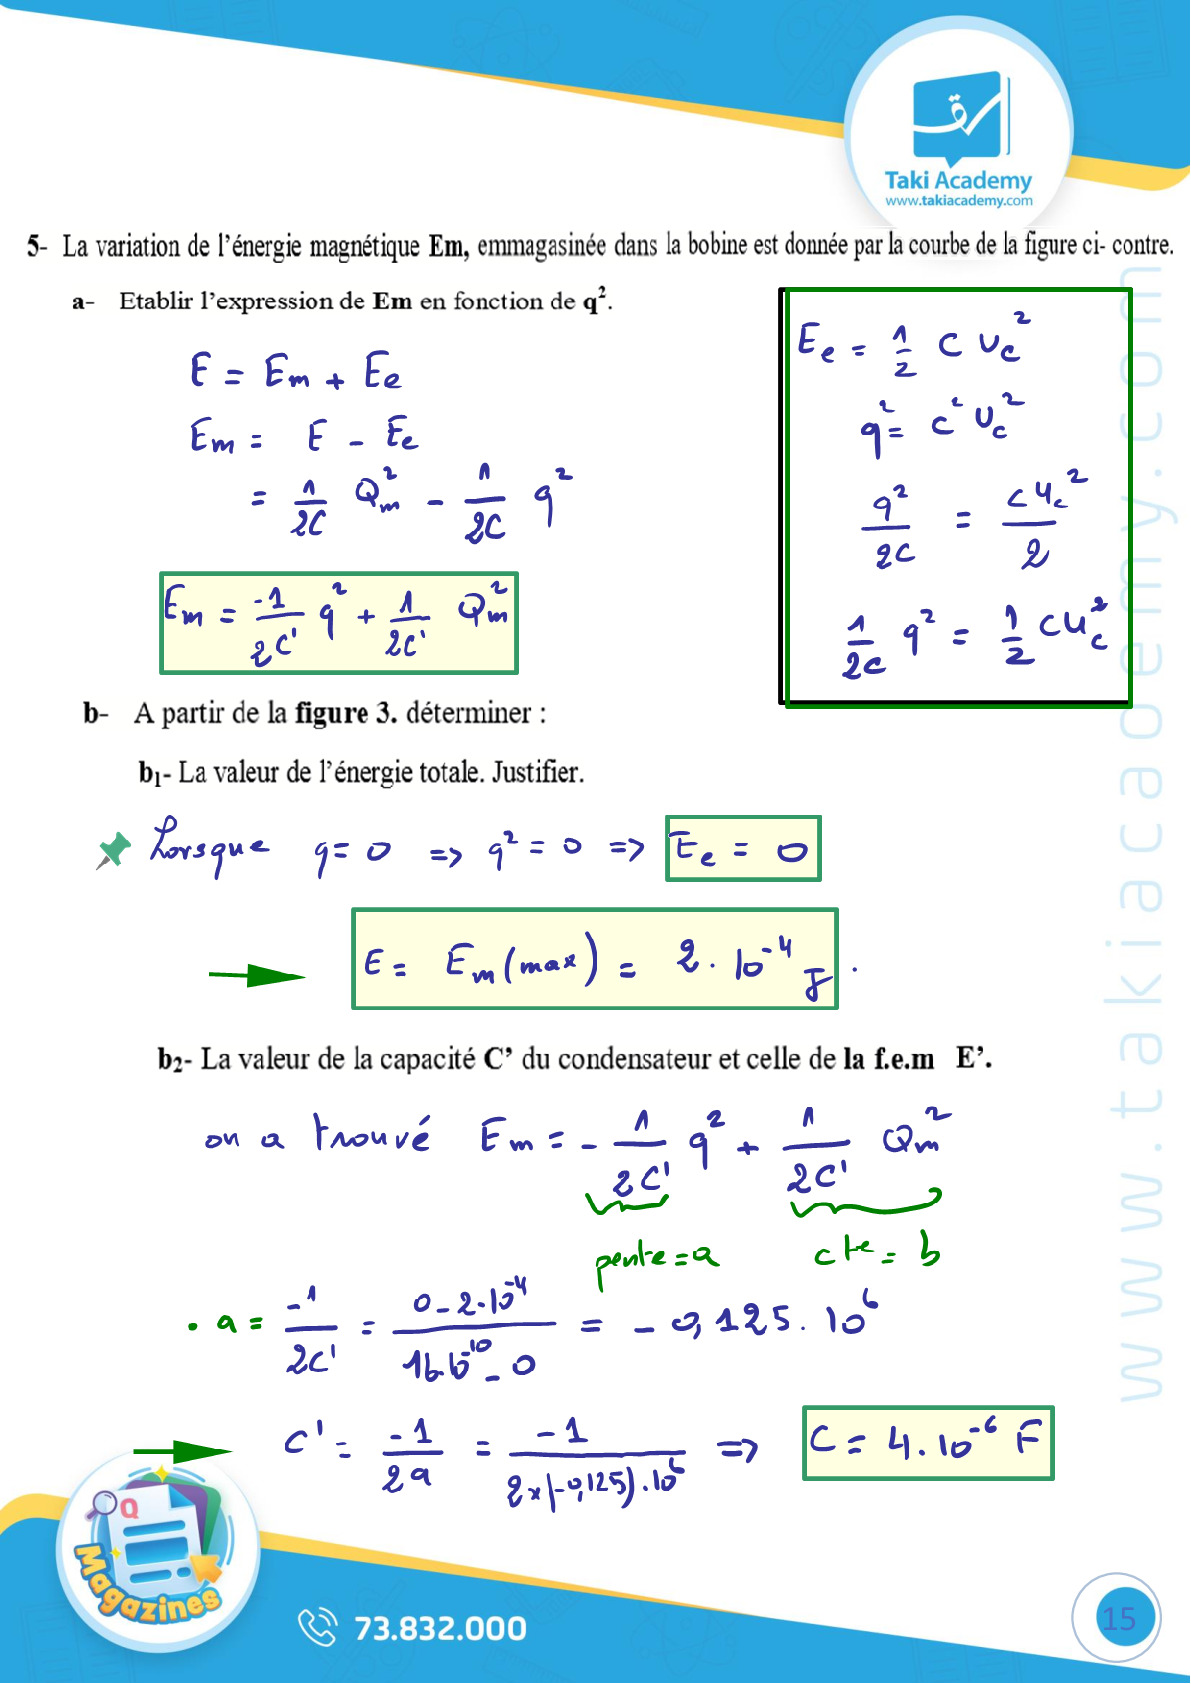 Taki Academy
www.takiacademy.com
5- La variation de l'énergie magnétique Em, emmagasinée dans la bobine est donnée par la courbe de la figure ci- contre.
a- Etablir l'expression de Em en fonction de q².
E = Em + Ee
Em = E - Ee
= 1/2C Qm² - 1/2C q²
Em = -1/2C' q² + 1/2C' Qm²
Ee = 1/2 C Uc²
q² = C² Uc²
q²/2C = CUc²/2
1/2C q² = 1/2 CUc²
b- A partir de la figure 3. déterminer :
b₁- La valeur de l'énergie totale. Justifier.
Lorsque q = 0 => q² = 0 => Ee = 0
E = Em(max) = 2.10⁻⁴ J.
b₂- La valeur de la capacité C' du condensateur et celle de la f.e.m E'.
on a trouvé Em = -1/2C' q² + 1/2C' Qm²
pente = a cte = b
• a = -1/2C' = 0-2.10⁻⁴/16.10⁻¹⁰-0 = -0,125.10⁶
C' = -1/2a = -1/2x(-0,125).10⁶ => C = 4.10⁻⁶ F
www.takiacaoemy.com
Q
Magazines
73.832.000
15